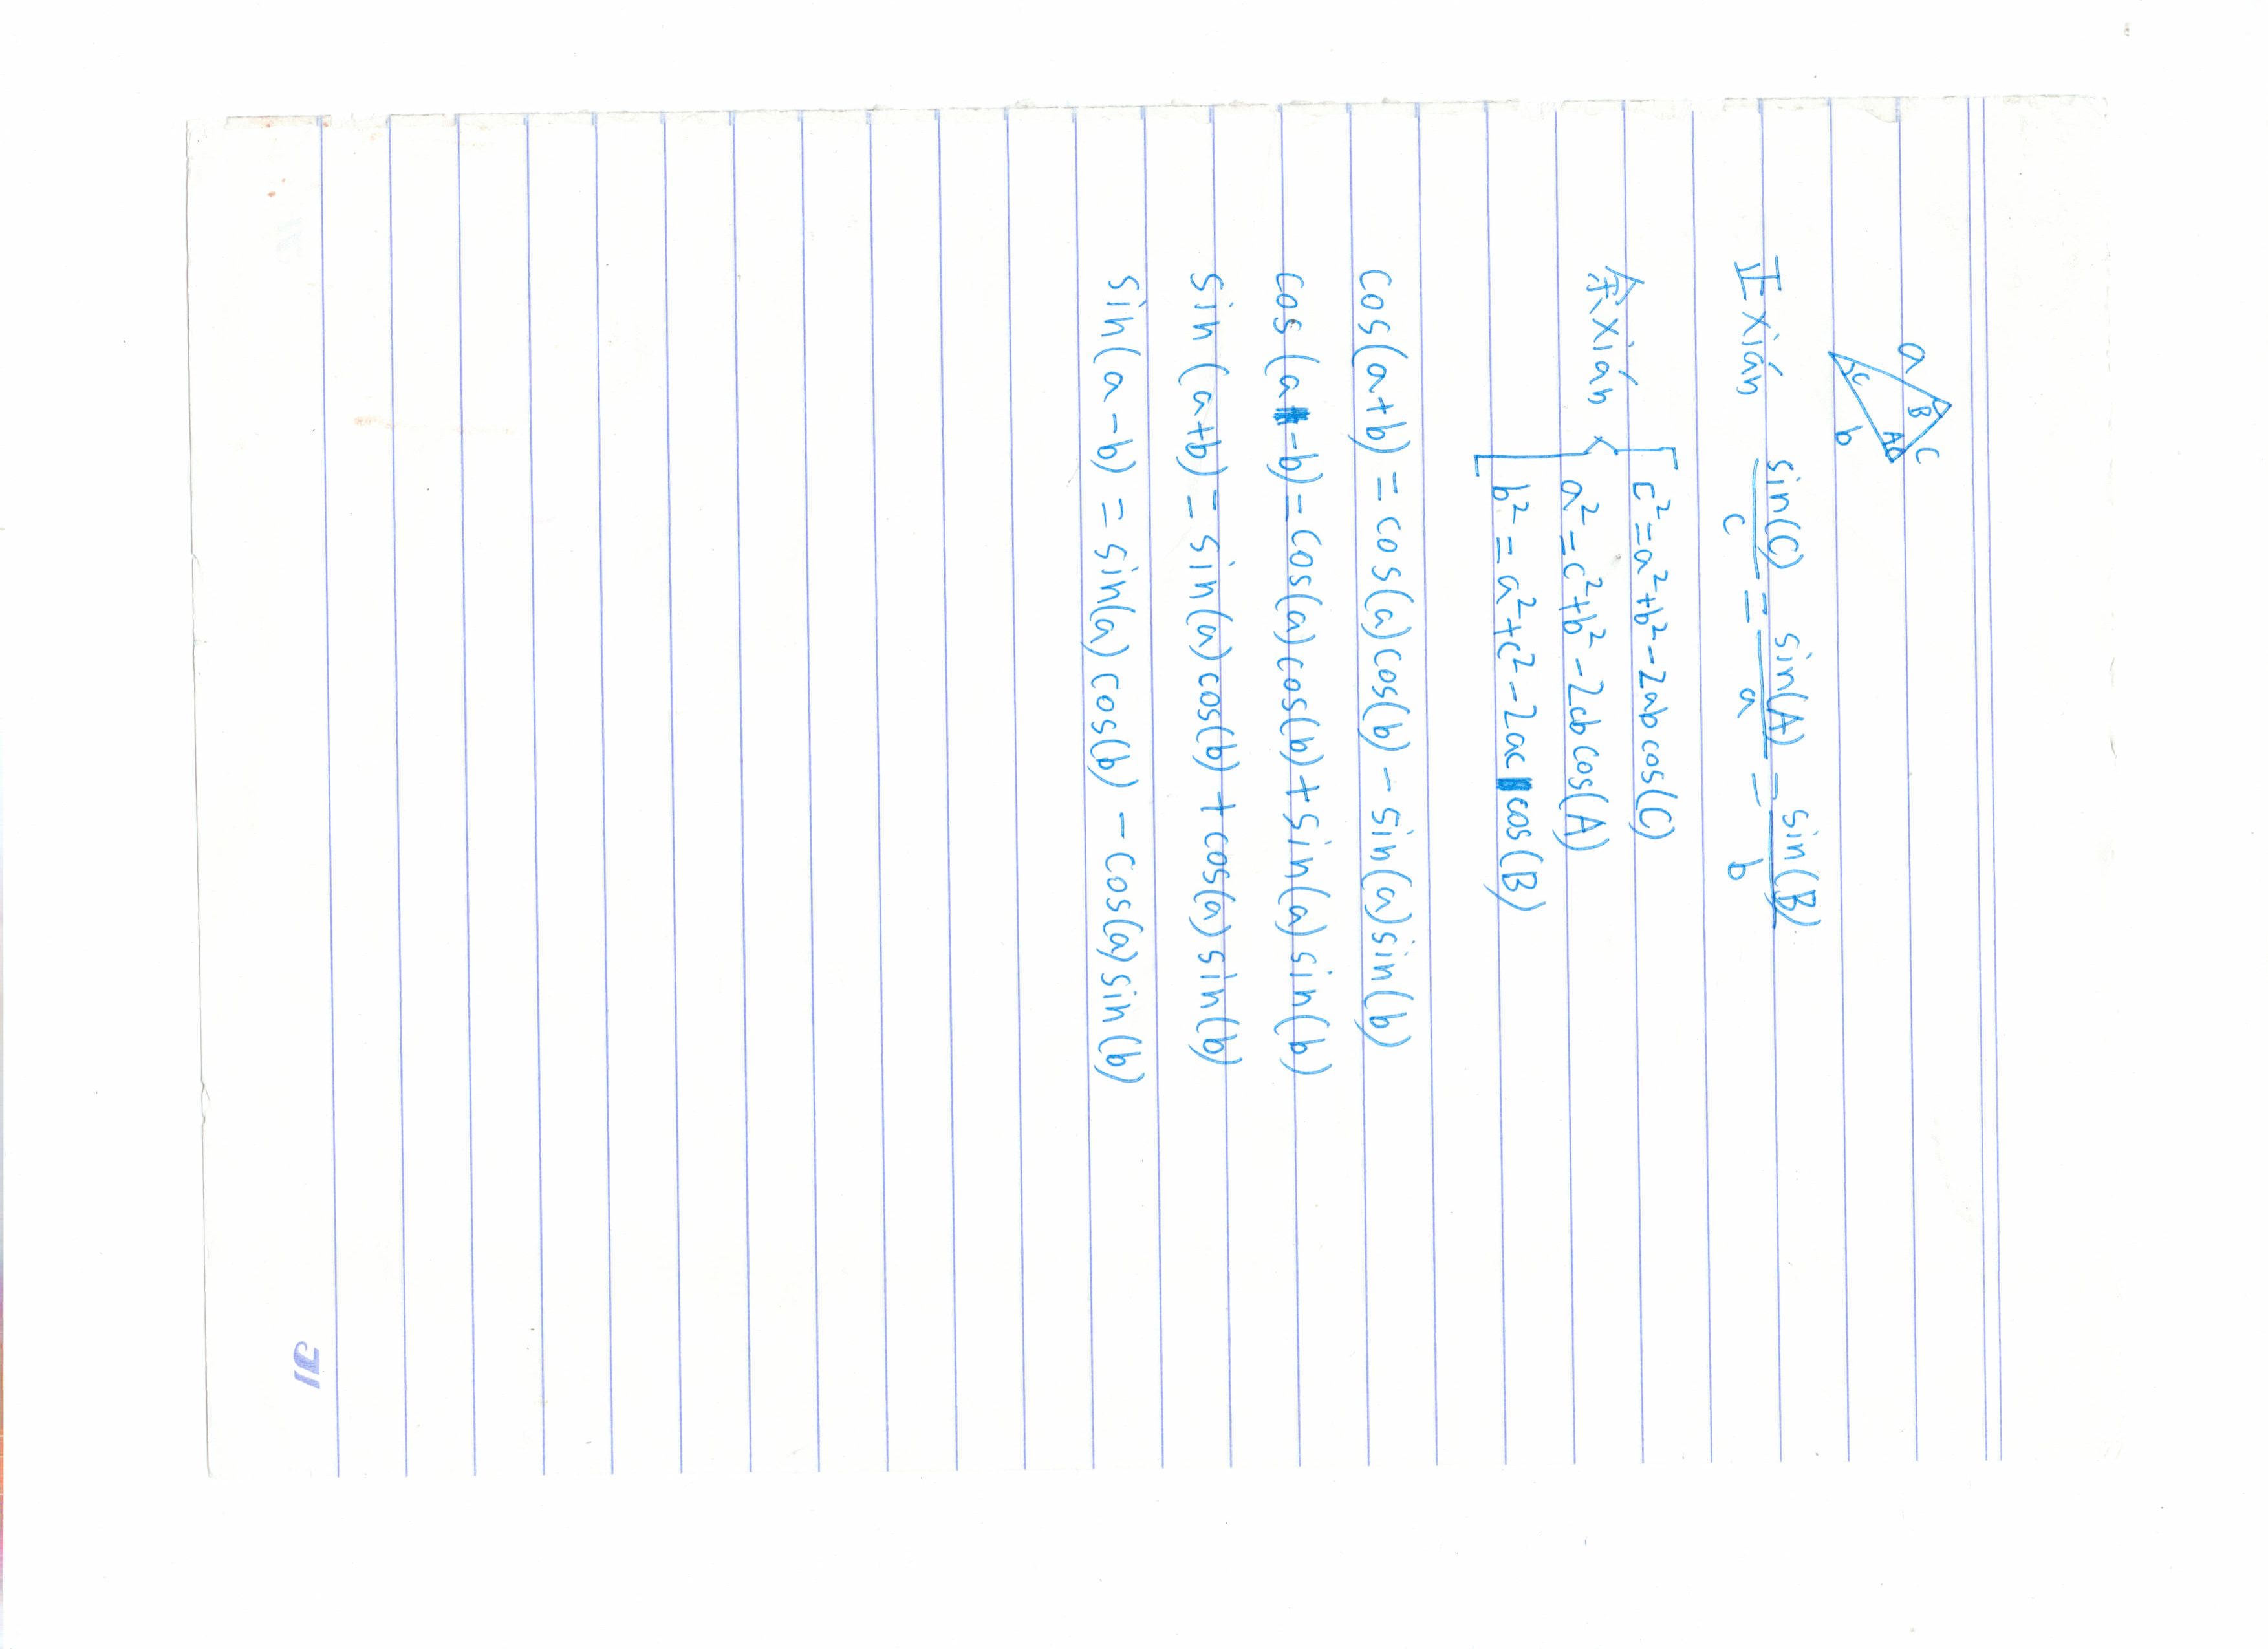 a B c
C A
b
正xián sin(C)/c = sin(A)/a = sin(B)/b
余xián { c²=a²+b²-2abcos(C)
a²=c²+b²-2cbcos(A)
b²=a²+c²-2accos(B)
cos(a+b)=cos(a)cos(b)-sin(a)sin(b)
cos(a-b)=cos(a)cos(b)+sin(a)sin(b)
sin(a+b)=sin(a)cos(b)+cos(a)sin(b)
sin(a-b)=sin(a)cos(b)-cos(a)sin(b)